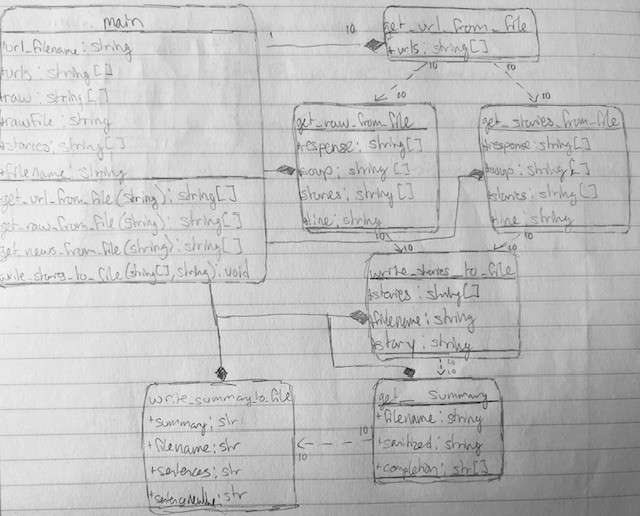 main
+url_filename: string
+urls: string[]
+raw: string[]
+rawFile: string
+stories: string[]
+filename: string
+get_url_from_file(string): string[]
+get_raw_from_file(string): string[]
get_news_from_file(string): string[]
write_stories_to_file(string[], string): void
1
10
get_url_from_file
+urls: string[]
10
10
10
10
get_raw_from_file
+response: string[]
+soup: string[]
stories: string[]
+line: string
10
get_stories_from_file
+response: string[]
+soup: string[]
+stories: string[]
+line: string
10
10
10
write_stories_to_file
+stories: string[]
+filename: string
+story: string
10
10
write_summary_to_file
+summary: str
+filename: str
+sentences: str
10
get_summary
+filename: string
+sanitized: string
+completion: str[]